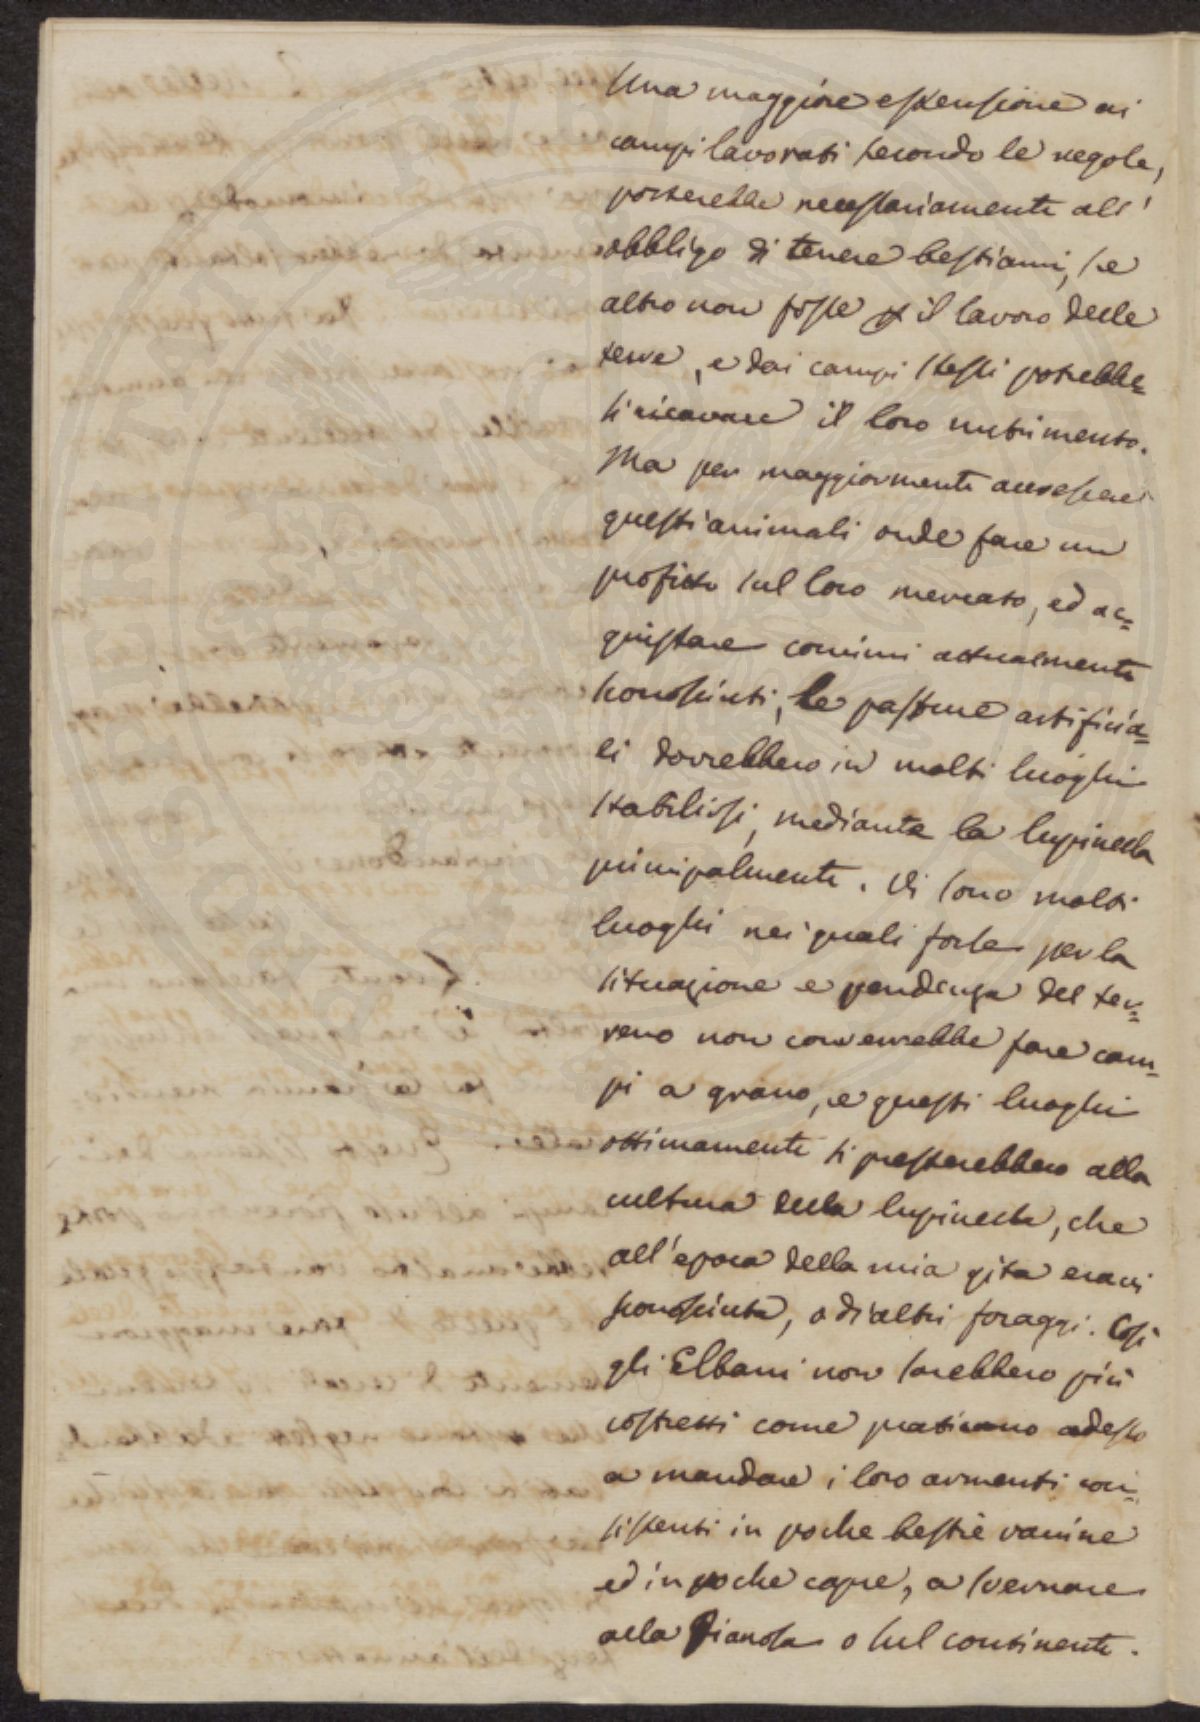 Una maggiore estensione ai
campi lavorati secondo le regole,
porterebbe necessariamente all'
obbligo di tenere bestiami, se
altro non fosse p il lavoro delle
terre, e dai campi stessi potrebbe=
si ricavare il loro nutrimento.
Ma per maggiormente accrescere
questi animali onde fare un
profitto sul loro mercato, ed ac=
quistare concimi attualmente
sconosciuti, le pasture artificia=
li dovrebbero in molti luoghi
stabilirsi, mediante la lupinella
principalmente. Vi sono molti
luoghi nei quali forse per la
situazione e pendenza del ter=
reno non converrebbe fare cam=
pi a grano, e questi luoghi
ottimamente si presterebbero alla
cultura della lupinella, che
all'epoca della mia gita eravi
sconosciuta, o di altri foraggi. Così
gli Elbani non sarebbero più
costretti come praticano adesso
a mandare i loro armenti con=
sistenti in poche bestie vaccine
ed in poche capre, a svernare
alla Pianosa o sul continente.